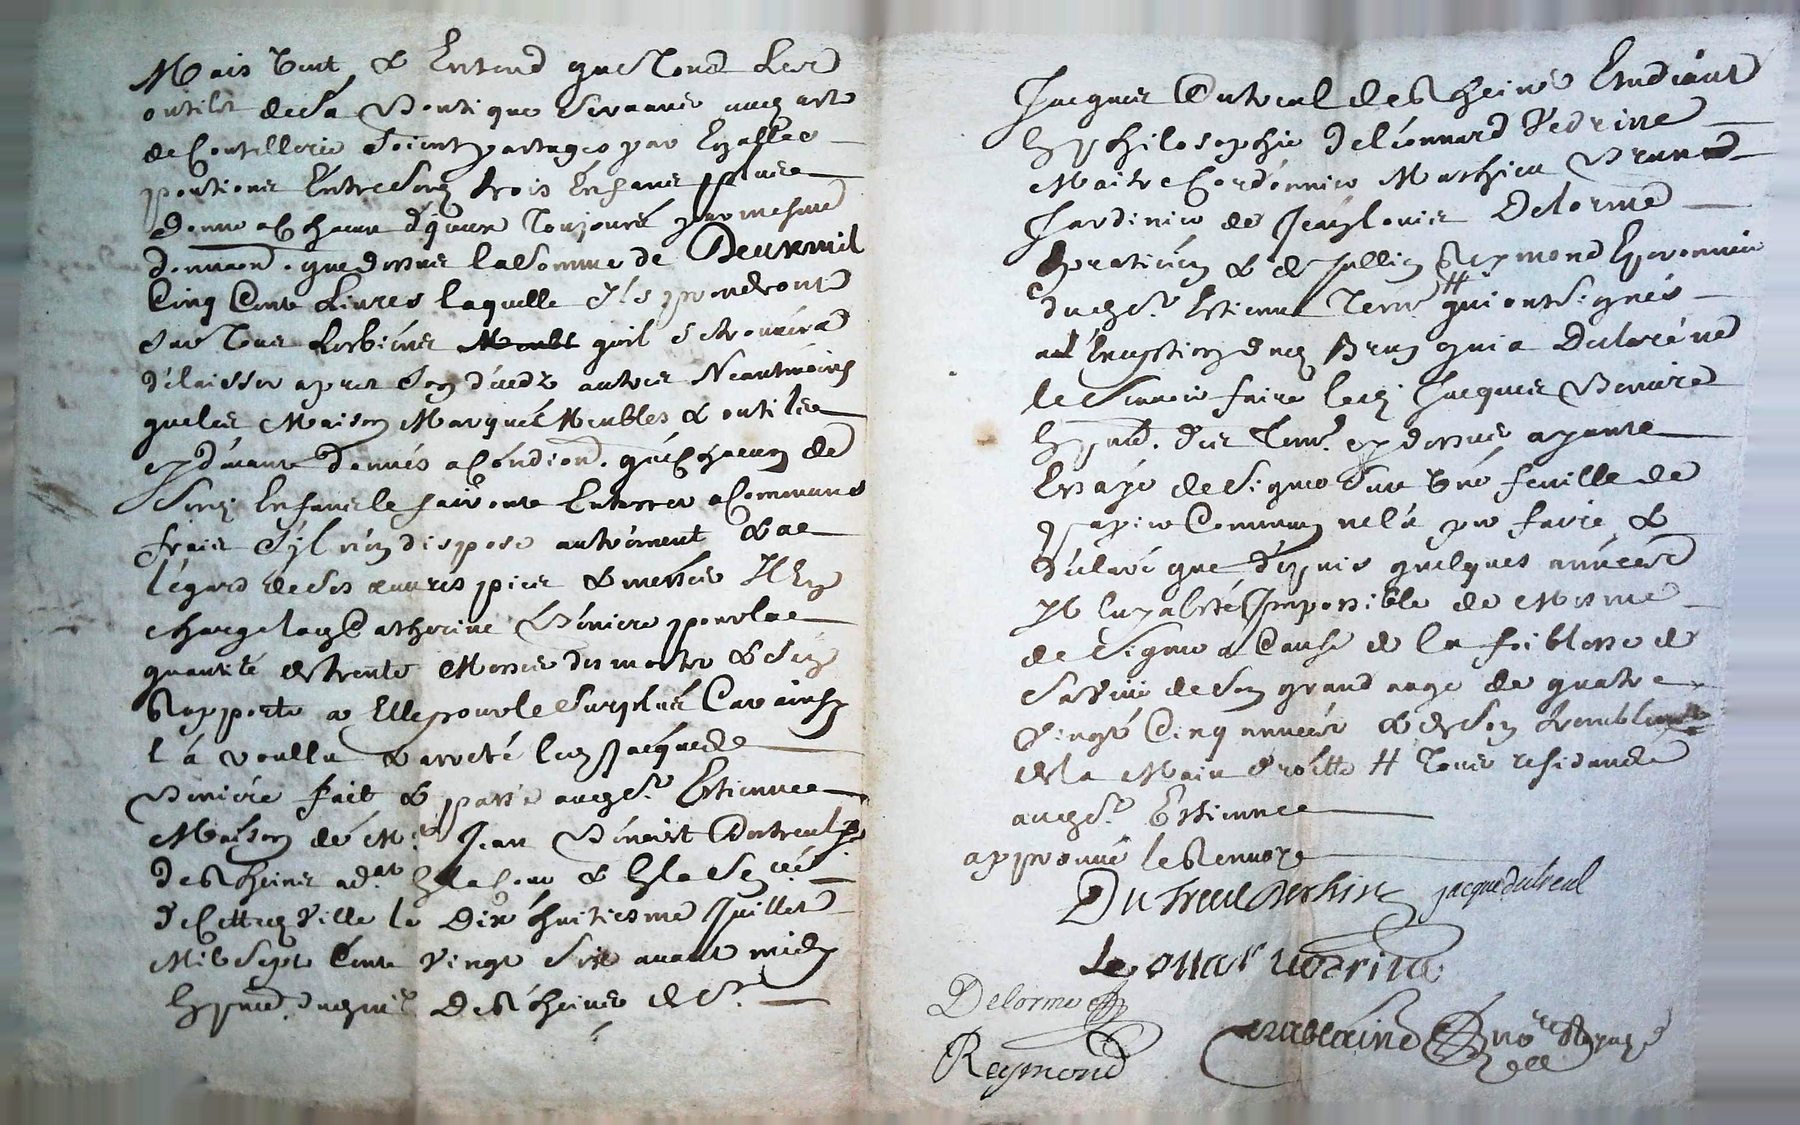 Mais veut & Entend que Tous Les
outils de sa Boutique servans audit art
de Coutellerie soient partages par Egalles
portions Entre ses trois Enfans plus
donne a Chacun d'iceux Toujours par mesme
donnaon. que dessus la somme de Deux mil
Cinq Cents Livres laquelle ils prendront
sur Tous les biens quil se trouvera
délaisser apres son déces autres Neantmoins
que les Maison Marqué Meubles & outils
cy dévant donnés a Condiond. que Chacun de
ses Enfans le fairont Enterrer a Communs
frais s'yl n'en dispose autrément & a
légard de ses œuvres pies & messes Il En
charge lad. Catherine Béniere pour la
quantité de trente Messes des morts & s'en
Rapporte a Elle pour le surplus Car ainsy
l'a voullu & arreté led. Jacques
Béniére fait & passé aud. St. Estienne
Maison dé Mr. Jean Bénoist Dutreul
des Rheins adat. En la Cour & En la Senéé.
de Cette Ville le Dix huitiesme Juillet
Mil Sept Cents Vingt Six avant midy
En pnce. dud. mr. des Rheins de Sr.
Jacques Dutreul des Rheins Etudiant
En philosophie de Léonnard Védrine
Maitre Cordonnier Mathieu Brun
Jardinier de Jean Louis Delorme
praticien & de Jullien Reymond Eperonnier
dud. St. Estienne Tem. # qui ont signés
a l'Exception dud. Brun qui a Declaré ne
le sçavoir faire led. Jacques Beniere
En pnce. des Tem. cy dessus ayant
Essayé de signer sur Une feuille de
papier Commun ne l'a peu faire &
déclaré que dépuis quelques années
Impossible de Mesme
de signer a Cause de la foiblesse de
sa Veue de son grand aage de quatre
vingt Cinq années & de son tremblement
de la Main droitte # Tous residants
aud. St. Estienne
approuvé le Renvoye
Dutreul Desrhins jacque dutreul
Leonar vedrine
Delorme
Reymond